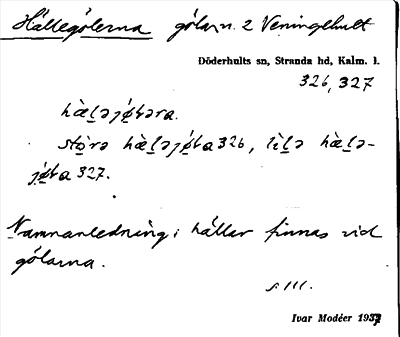 Hällegölerna gölar n. 2 Veningehult
Döderhults sn, Stranda hd, Kalm. l.
326, 327
hæ̀lǝjø̀tǝra.
stòrǝ hæ̀lǝjø̀ta 326, lìlǝ hæ̀lǝ-
jø̀ta 327.
Namnanledning: hällar finnas vid
gölarna.
s. III.
Ivar Modéer 1937